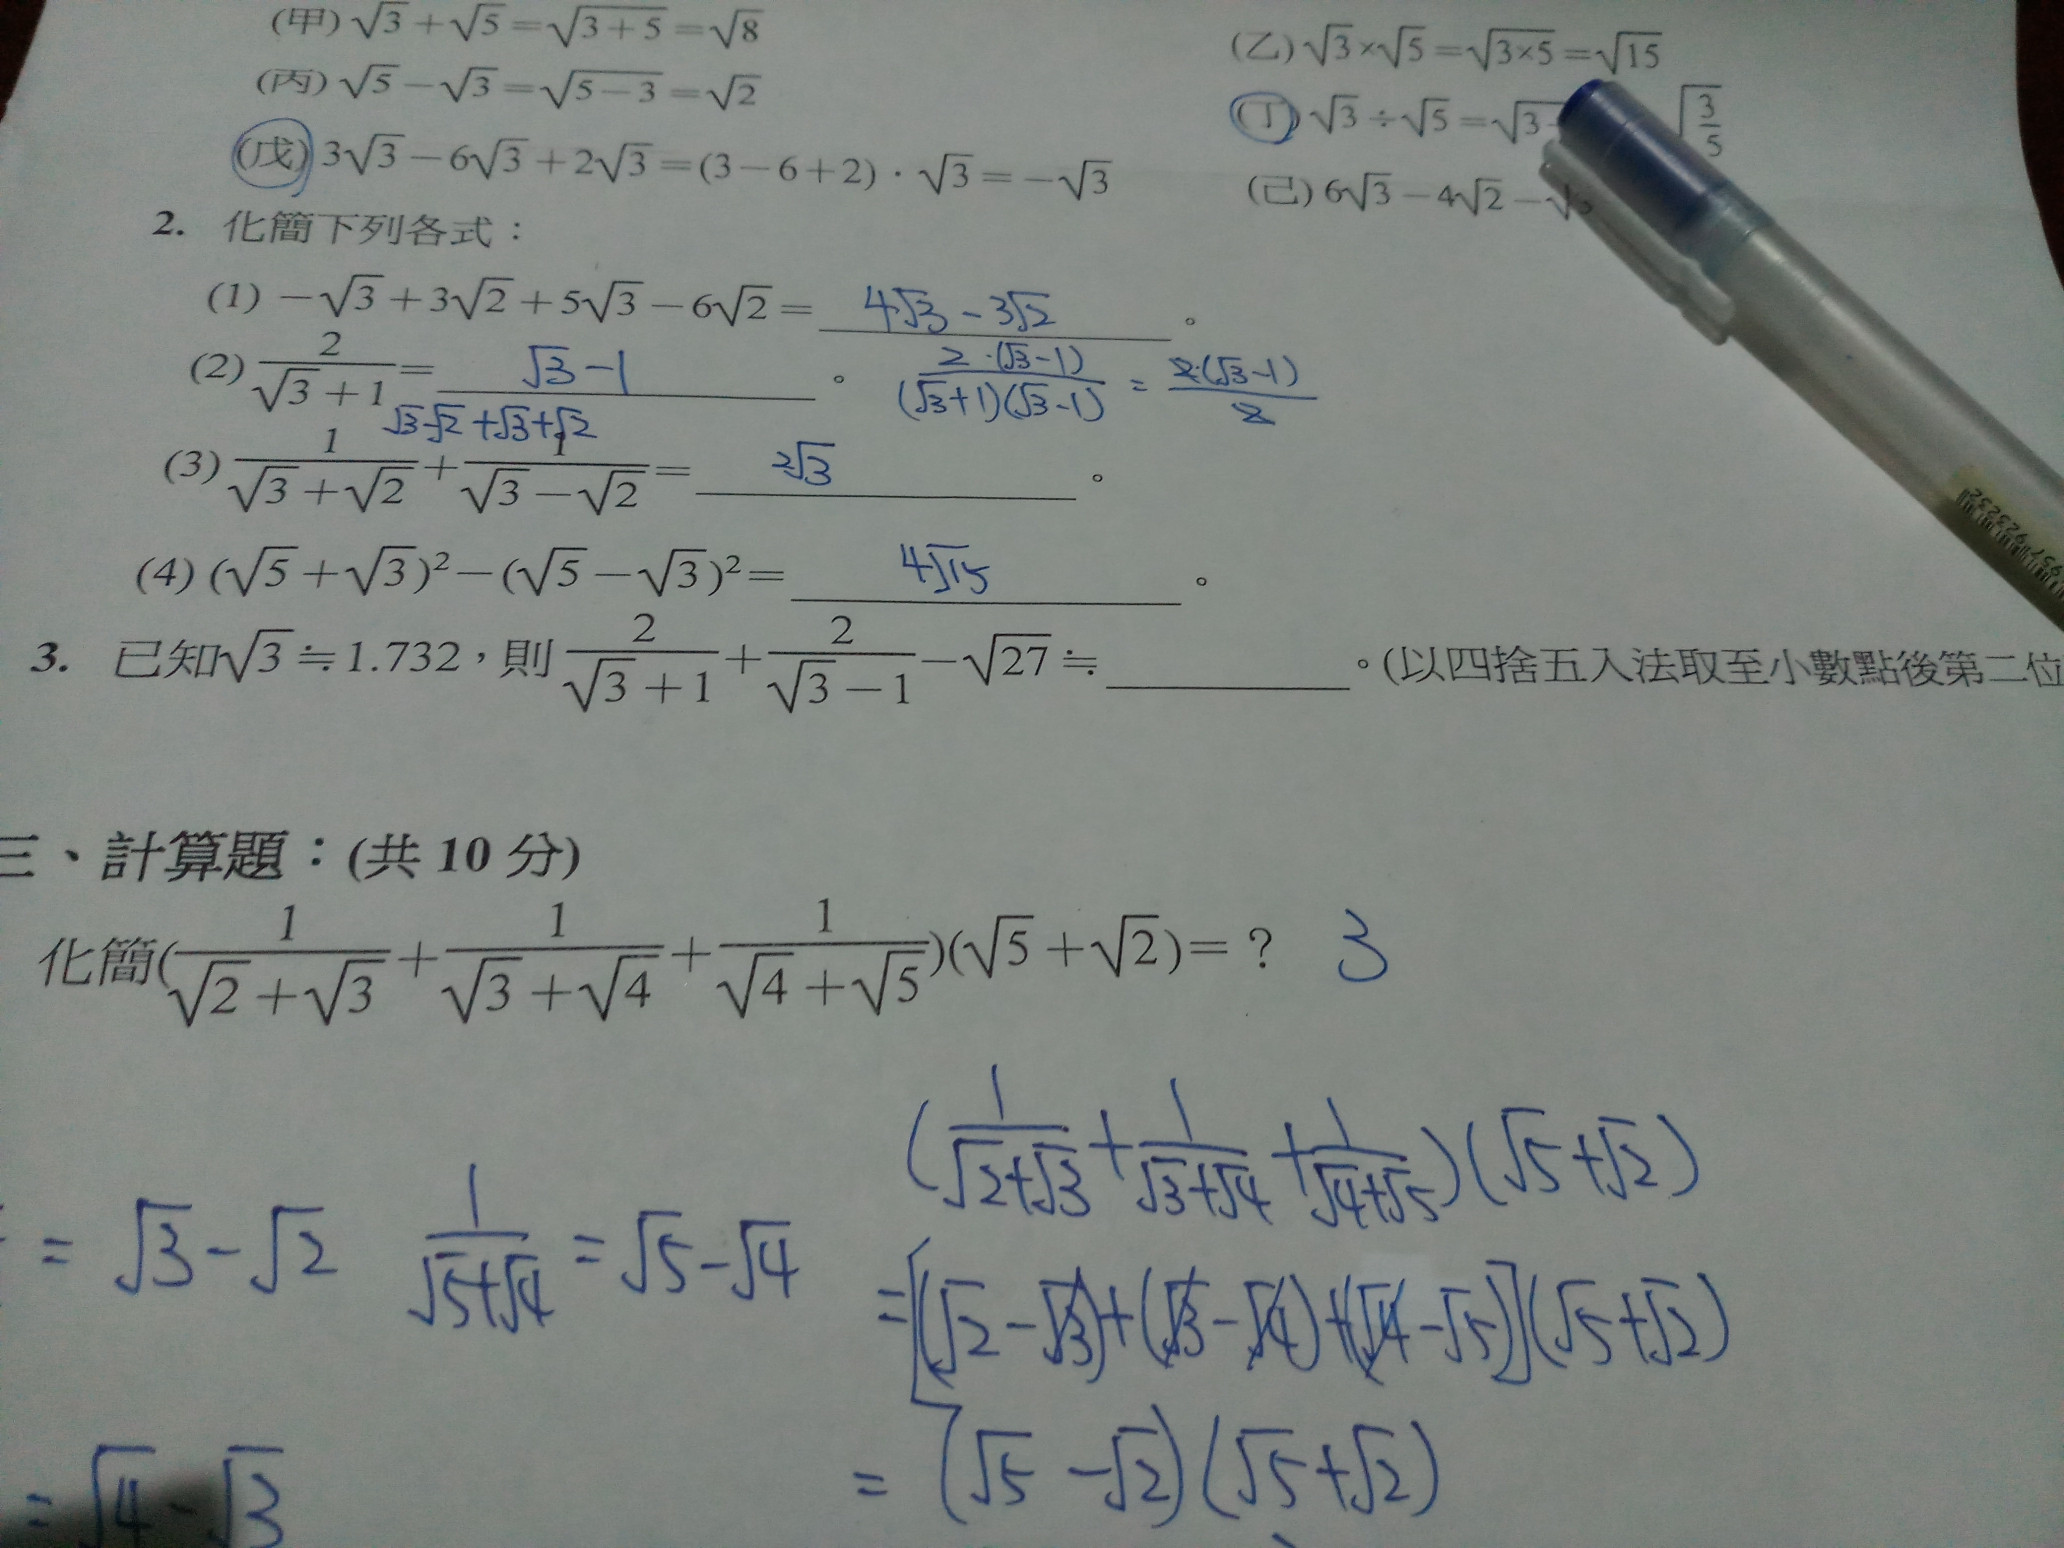 (甲) √3+√5=√(3+5)=√8
(乙) √3×√5=√(3×5)=√15
(丙) √5−√3=√(5−3)=√2
(丁) √3÷√5=√3 √(3/5)
(戊) 3√3−6√3+2√3=(3−6+2)·√3=−√3
(己) 6√3−4√2−
2. 化簡下列各式：
(1) −√3+3√2+5√3−6√2= 4√3-3√2 。
(2) 2/(√3+1)= √3-1 。 2·(√3-1)/(√3+1)(√3-1) = 2·(√3-1)/2
√3-√2+√3+√2
(3) 1/(√3+√2)+1/(√3−√2)= 2√3 。
(4) (√5+√3)²−(√5−√3)²= 4√15 。
3. 已知√3≒1.732，則 2/(√3+1)+2/(√3−1)−√27≒ 。(以四捨五入法取至小數點後第二位
三、計算題：(共 10 分)
化簡(1/(√2+√3)+1/(√3+√4)+1/(√4+√5))(√5+√2)=？ 3
(1/(√2+√3)+1/(√3+√4)+1/(√4+√5))(√5+√2)
= √3-√2 1/(√5+√4) = √5-√4
=[(√2-√3)+(√3-√4)+(√4-√5)](√5+√2)
= (√5-√2)(√5+√2)
= √4-√3
9579232332